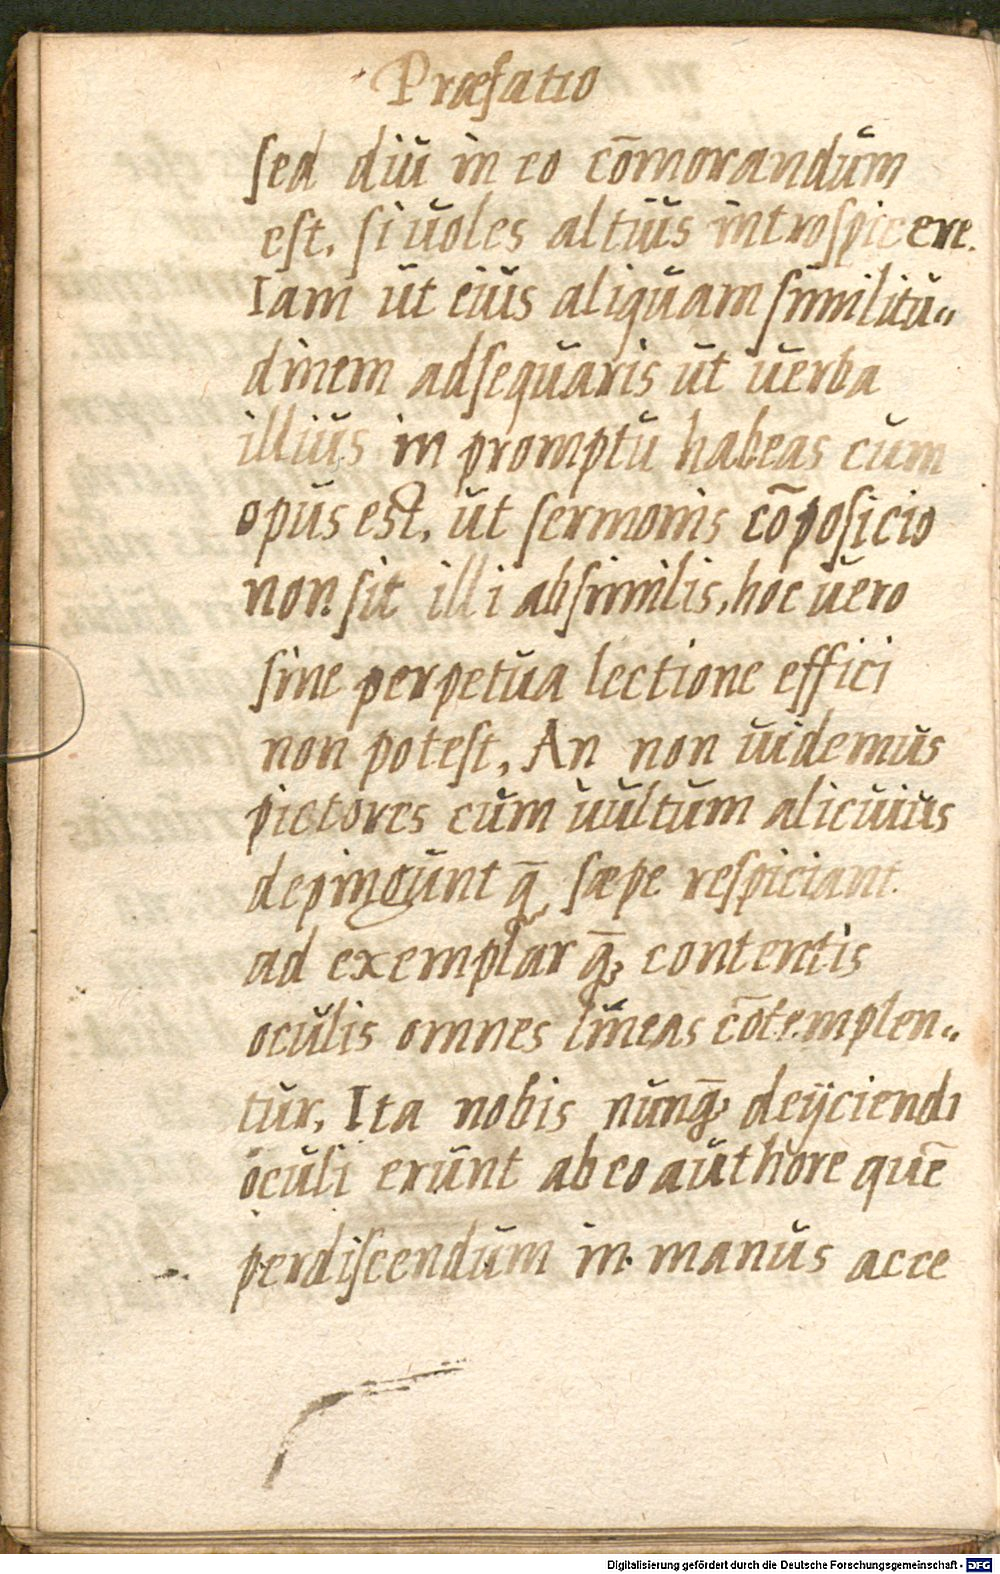 Præfatio
sed diu in eo cōmorandum
est, si uoles altius introspicere.
Iam ut eius aliquam similitu„
dinem adsequaris ut uerba
illius in promptu habeas cum
opus est, ut sermonis cōposicio
non sit illi absimilis, hoc uero
sine perpetua lectione effici
non potest, An non uidemus
pictores cum uultum alicuius
depingunt q̄ sæpe respiciant
ad exemplar q̄ꝫ contentis
oculis omnes lineas cōtemplen„
tur, Ita nobis nunq̄ꝫ deijciendi
oculi erunt ab eo authore quē
perdiscendum in manus acce
Digitalisierung gefördert durch die Deutsche Forschungsgemeinschaft - DFG